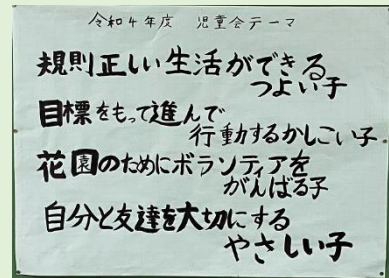 令和4年度　児童会テーマ
規則正しい生活ができる
つよい子
目標をもって進んで
行動するかしこい子
花園のためにボランティアを
がんばる子
自分と友達を大切にする
やさしい子